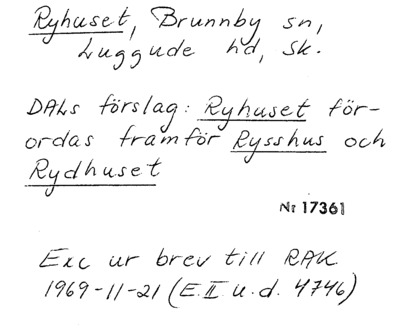 Ryhuset, Brunnby sn,
Luggude hd, Sk.
DALs förslag: Ryhuset för-
ordas framför Rysshus och
Rydhuset
Nr 17361
Exc ur brev till RAK
1969-11-21 (E.II u.d. 4746)